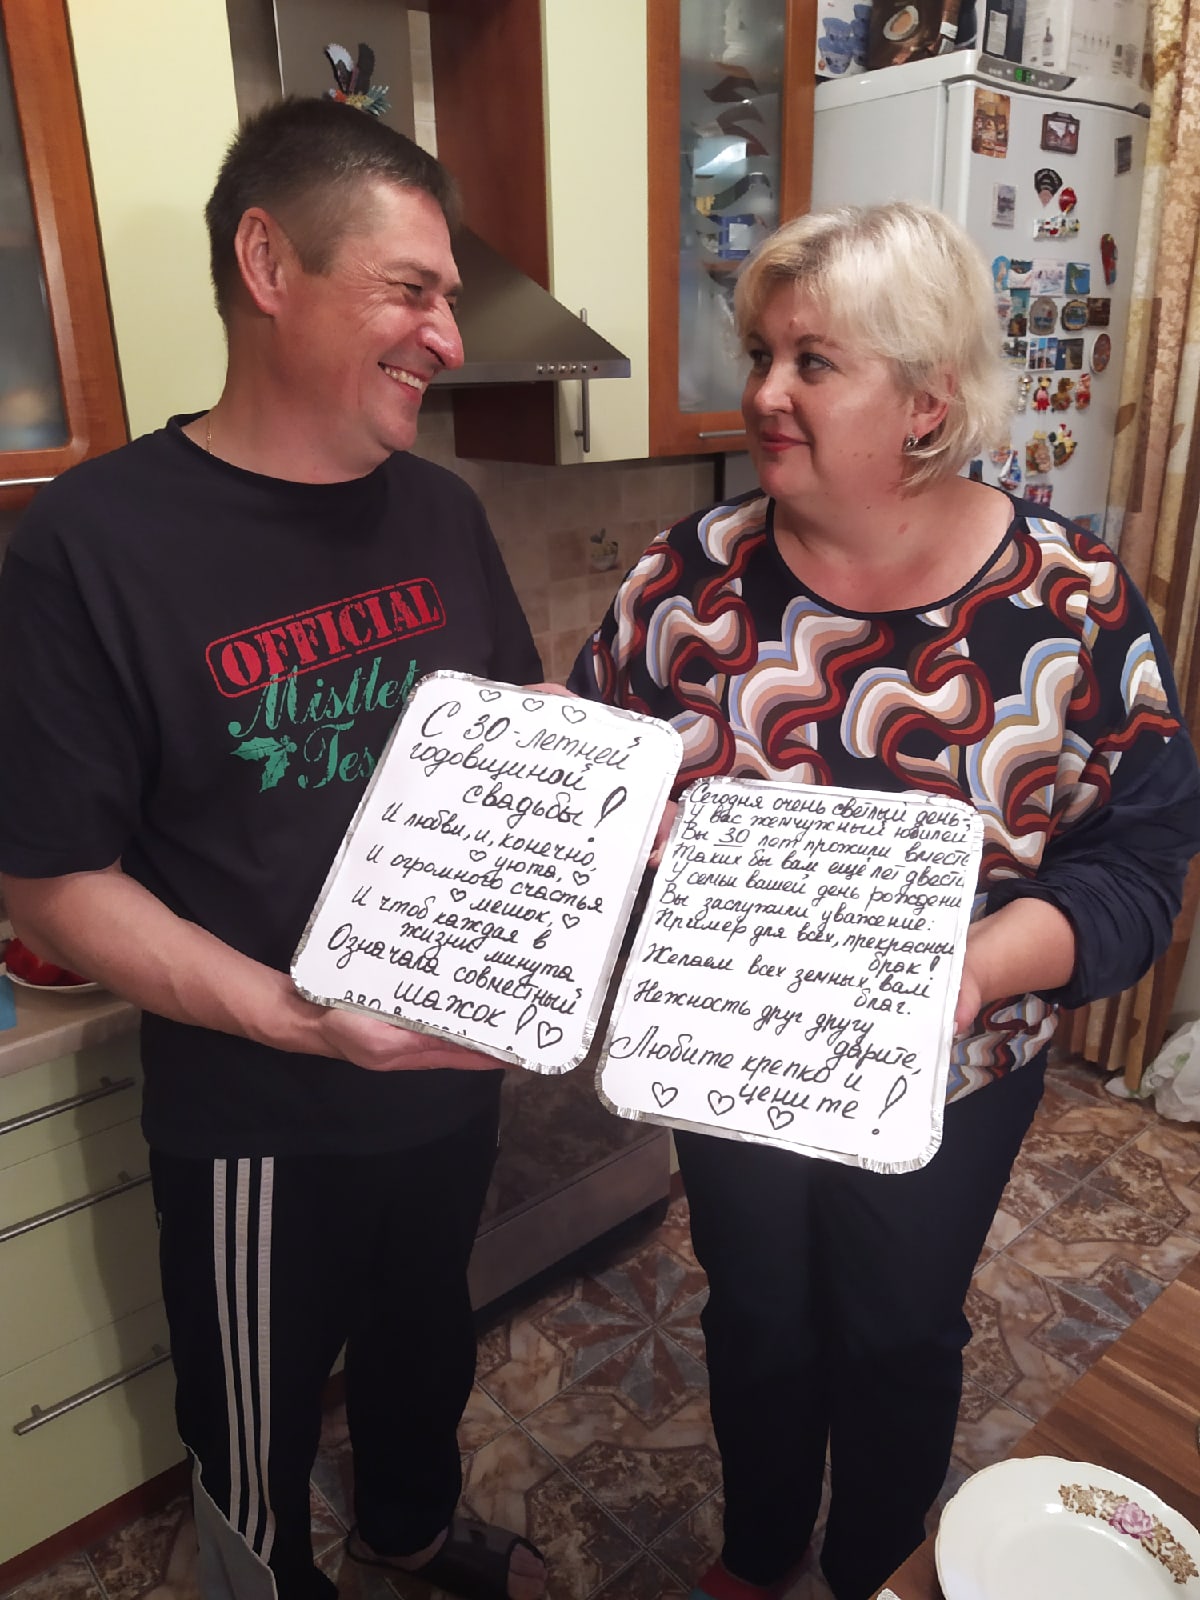 OFFICIAL
Mistlet
Tes
С 30-летней
годовщиной
свадьбы!
И любви, и, конечно,
уюта,
И огромного счастья
мешок,
И чтоб каждая в
жизни минута
Означала совместный
шажок!
Сегодня очень светлый день-
У вас жемчужный юбилей
Вы 30 лет прожили вместе
Таких бы вам ещё лет двести
У семьи вашей день рождени
Вы заслужили уважение:
Пример для всех, прекрасный
брак!
Желаем всех земных вам
благ.
Нежность друг другу
дарите,
Любите крепко и
цените!